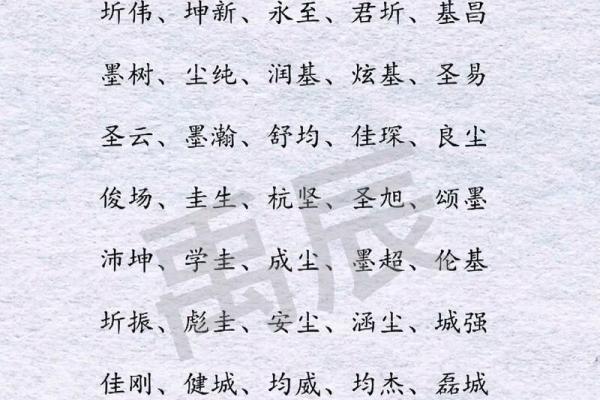 圻伟、坤新、永至、君圻、基昌
墨树、尘纯、润基、炫基、圣易
圣云、墨瀚、舒均、佳琛、良尘
俊场、圭生、杭坚、圣旭、颂墨
沛坤、学圭、成尘、墨超、伦基
圻振、彪圭、安尘、涵尘、城强
佳刚、健城、均威、均杰、磊城
禹辰